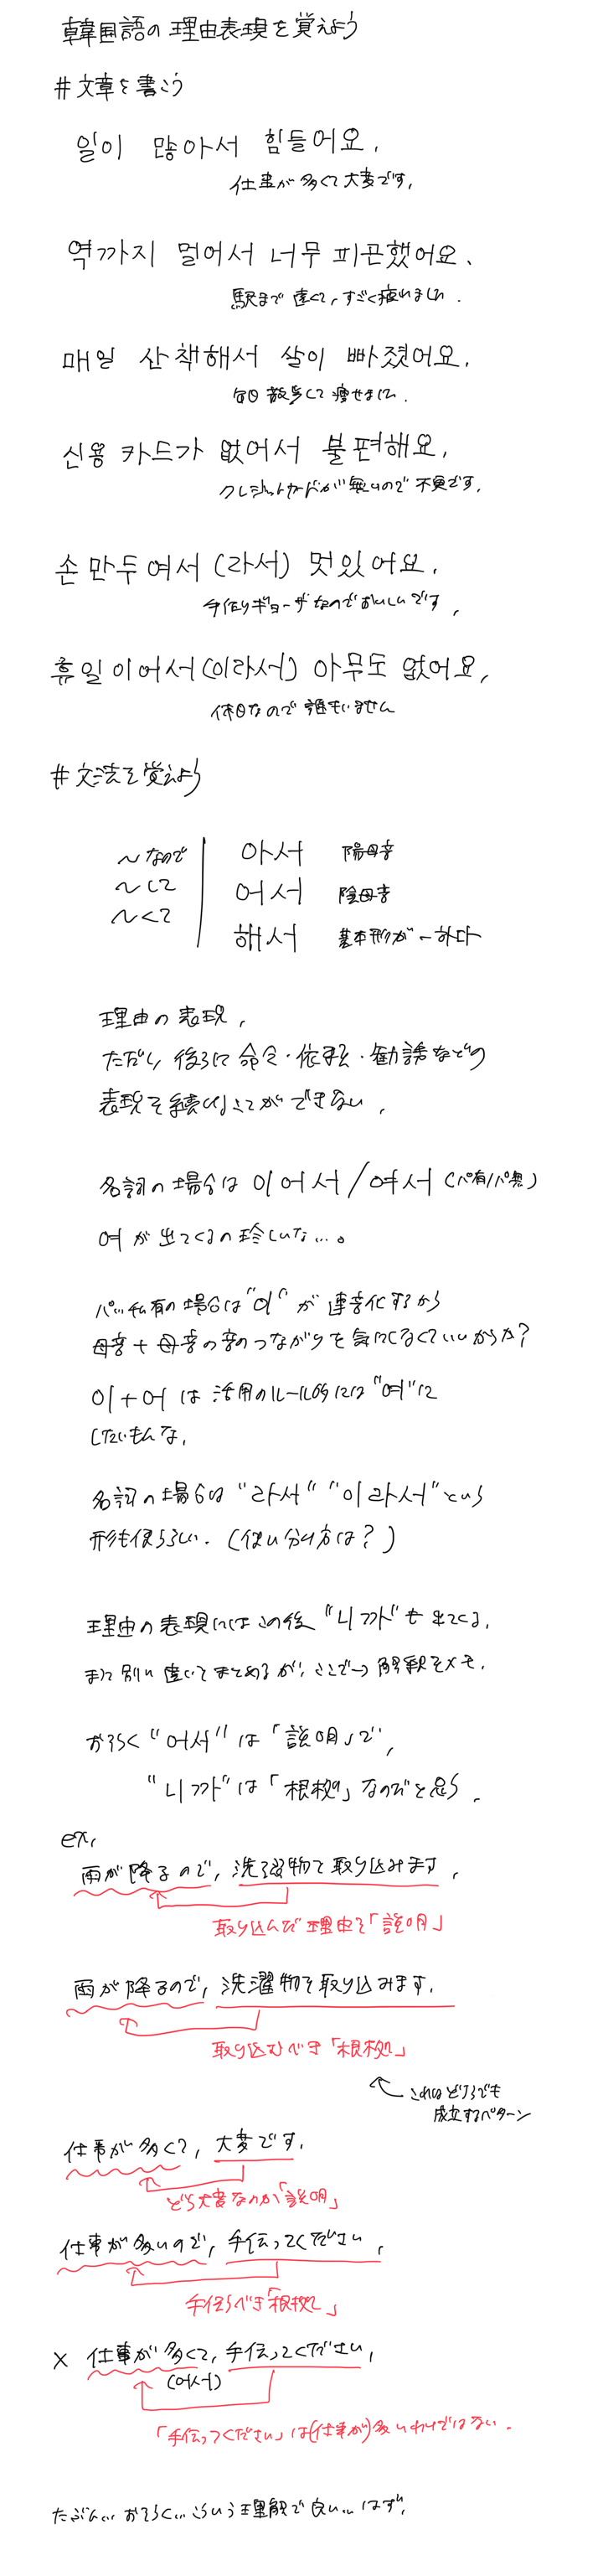 韓国語の理由表現を覚えよう
#文章を書こう
일이 많아서 힘들어요.
仕事が多くて大変です.
역까지 멀어서 너무 피곤했어요.
駅まで遠くて, すごく疲れました.
매일 산책해서 살이 빠졌어요.
毎日散歩して痩せました.
신용 카드가 없어서 불편해요.
クレジットカードが無いので不便です.
손만두여서 (라서) 멋있어요.
手作りギョーザなのでおいしいです.
휴일이어서(이라서) 아무도 없어요.
休日なので誰もいません
#文法を覚えよう
~なので 아서 陽母音
~して 어서 陰母音
~くて 해서 基本形が-하다
理由の表現,
ただし, 後ろに命令・依頼・勧誘などの
表現を続けることができない.
名詞の場合は이어서/여서(パ有/パ無)
여が出てくるの珍しいな…。
パッチム有の場合は"이"が連音化するから
母音+母音の音のつながりを気にしなくていいからか?
이+어は活用のルール的には"여"に
したいもんな.
名詞の場合は"라서" "이라서"という
形も使うらしい. (使い分け方は?)
理由の表現にはこの後"니까"も出てくる.
また別に書いてまとめるが, ここで一つ解釈をメモ.
おそらく"어서"は「説明」で,
"니까"は「根拠」なのだと思う.
ex,
雨が降るので, 洗濯物を取り込みます.
取り込んだ理由を「説明」
雨が降るので, 洗濯物を取り込みます.
取り込むべき「根拠」
これはどうでも
成立するパターン
仕事が多くて, 大変です.
どう大変なのか「説明」
仕事が多いので, 手伝ってください.
手伝うべき「根拠」
× 仕事が多くて, 手伝ってください.
(어서)
「手伝ってください」は(仕事が)多いわけではない.
たぶん… おそらく… こういう理解で良い… はず.